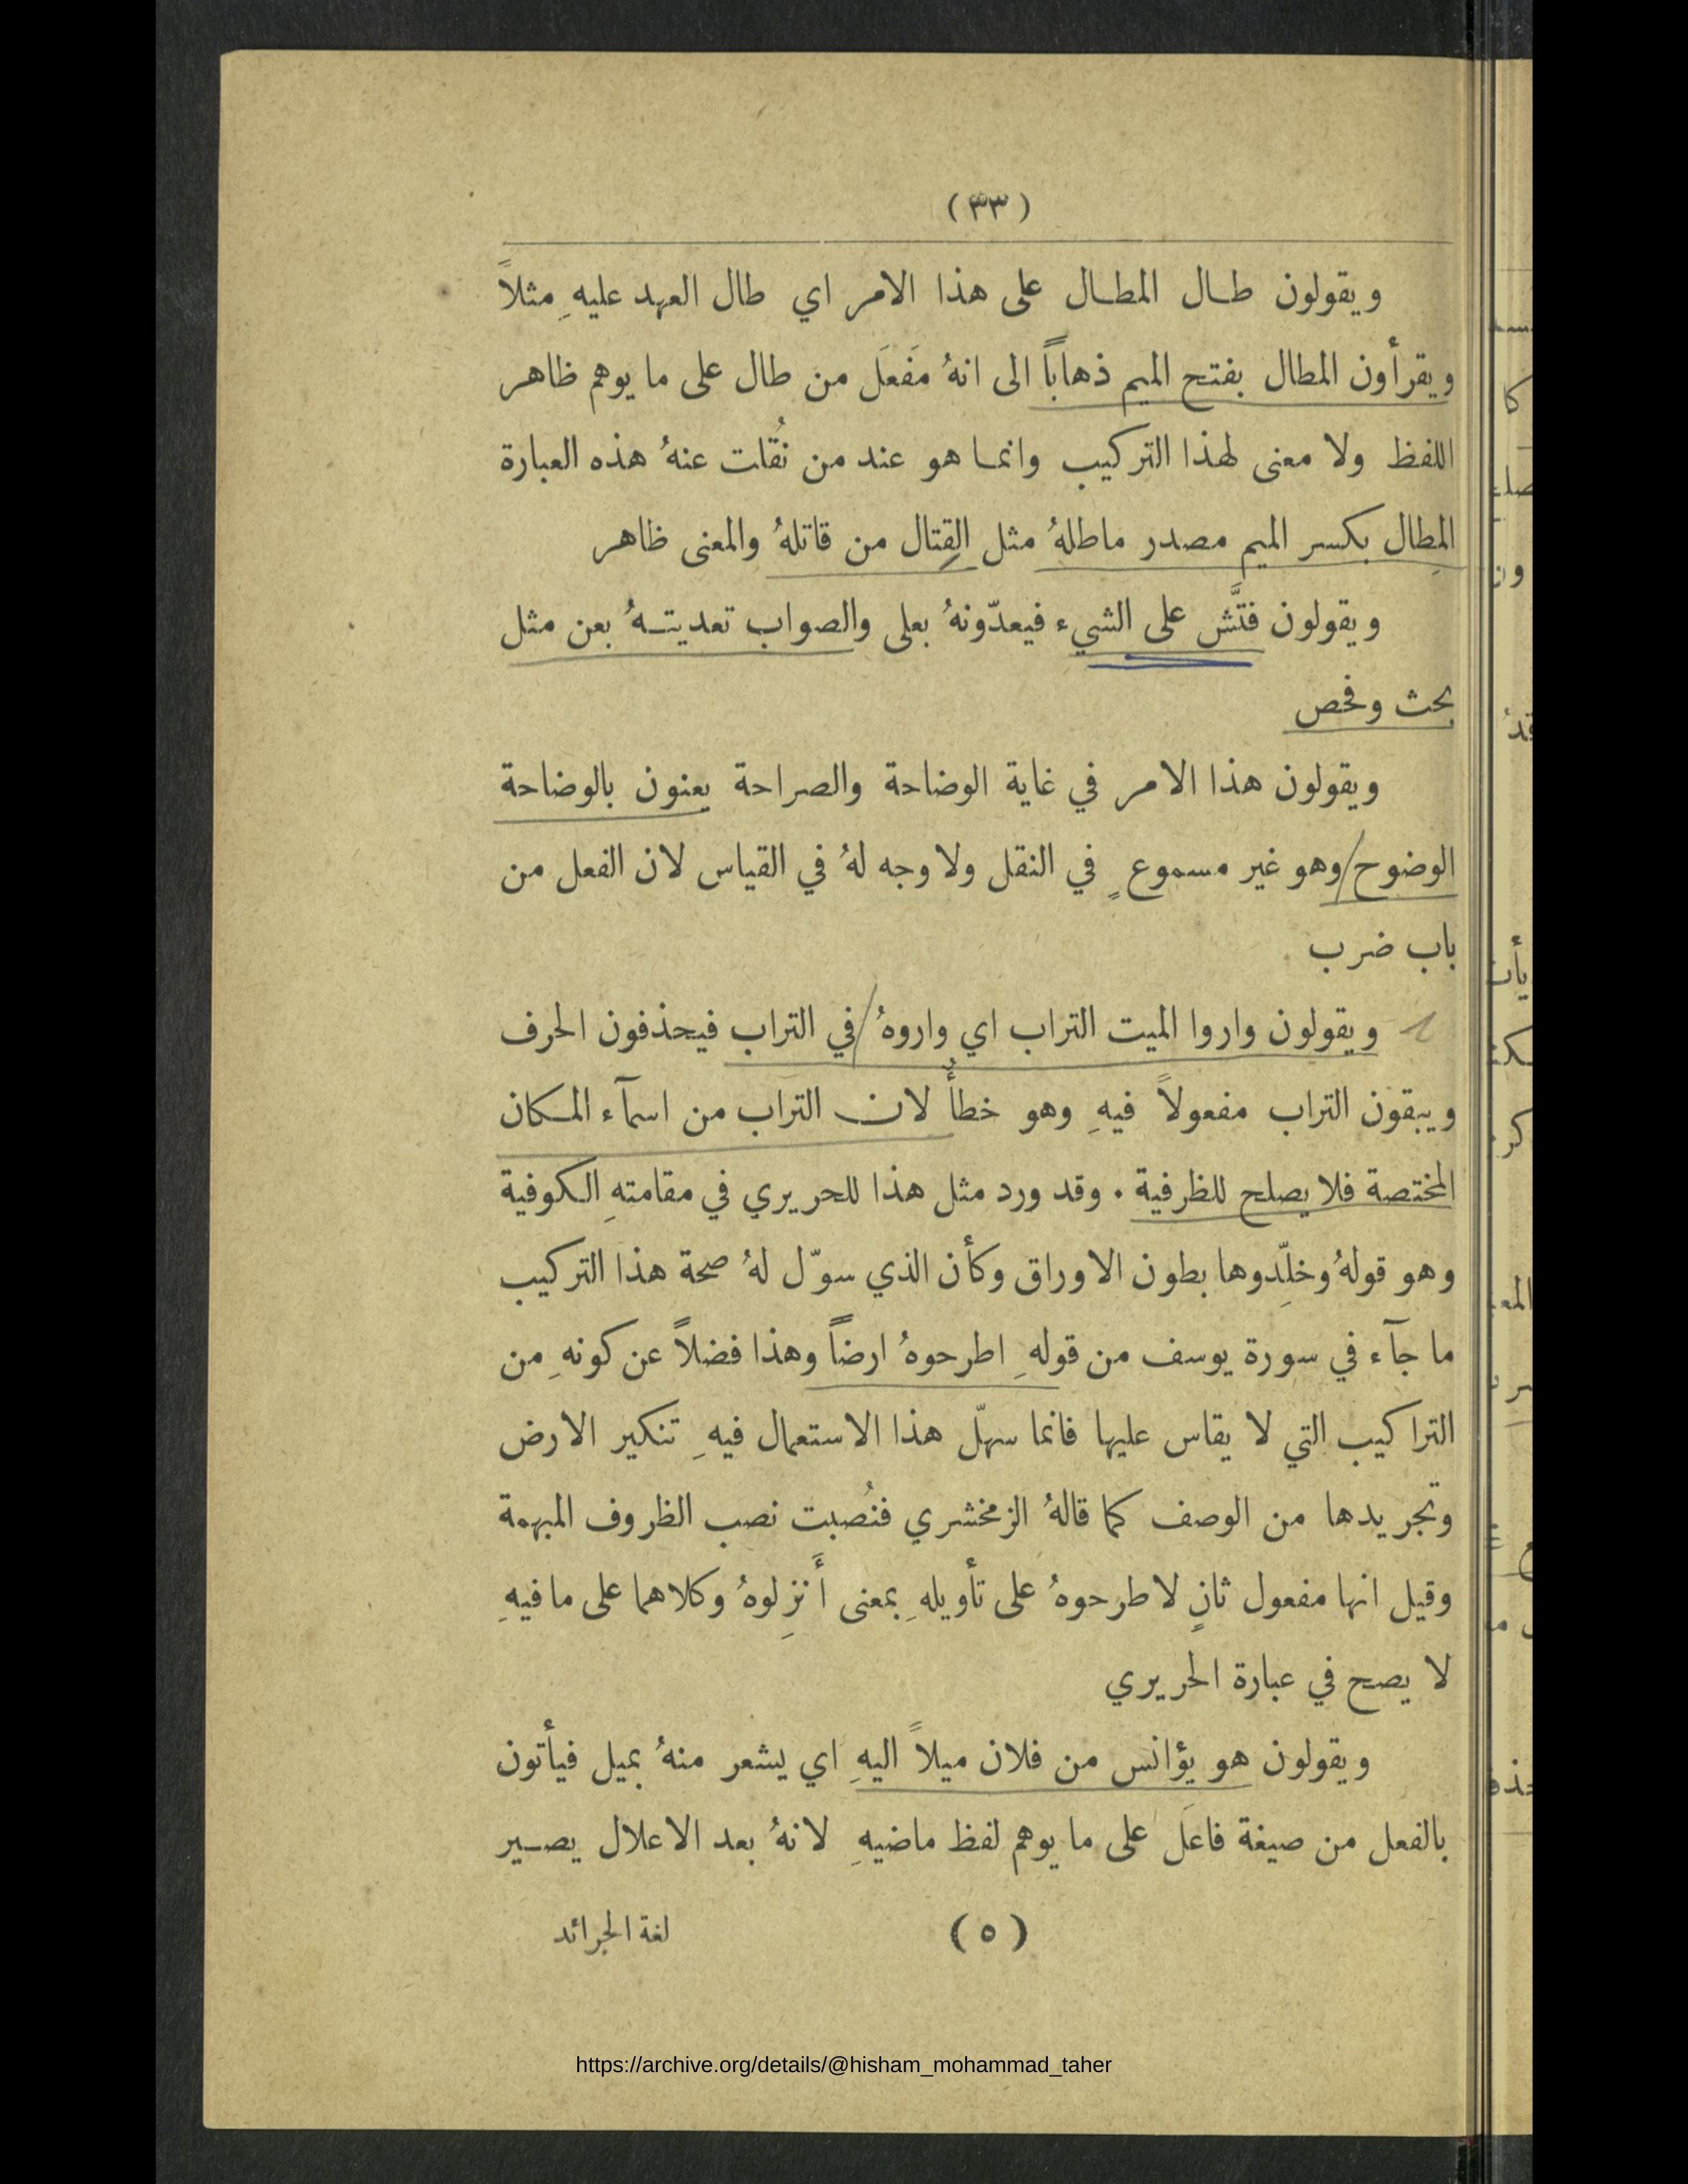 (٣٣)
ويقولون طـال المطـال على هذا الامر اي طال العهد عليهِ مثلاً
ويقرأون المطال بفتح الميم ذهاباً الى انهُ مَفعَل من طال على ما يوهم ظاهر
اللفظ ولا معنى لهذا التركيب وانمـا هو عند من نُقلت عنهُ هذه العبارة
المِطال بكسر الميم مصدر ماطلهُ مثل القِتال من قاتلهُ والمعنى ظاهر
ويقولون فتَّش على الشيء فيعدّونهُ بعلى والصواب تعديتـهُ بعن مثل
بحث وفحص
ويقولون هذا الامر في غاية الوضاحة والصراحة يعنون بالوضاحة
الوضوح وهو غير مسموعٍ في النقل ولا وجه لهُ في القياس لان الفعل من
باب ضرب
ويقولون واروا الميت التراب اي واروهُ في التراب فيحذفون الحرف
ويبقون التراب مفعولاً فيهِ وهو خطأٌ لان التراب من اسمآء المكان
المختصة فلا يصلح للظرفية . وقد ورد مثل هذا للحريري في مقامتهِ الكوفية
وهو قولهُ وخلِّدوها بطون الاوراق وكأن الذي سوّل لهُ صحة هذا التركيب
ما جآء في سورة يوسف من قولهِ اطرحوهُ ارضاً وهذا فضلاً عن كونهِ من
التراكيب التي لا يقاس عليها فانما سهّل هذا الاستعمال فيهِ تنكير الارض
وتجريدها من الوصف كما قالهُ الزمخشري فنُصبت نصب الظروف المبهمة
وقيل انها مفعول ثانٍ لاطرحوهُ على تأويلهِ بمعنى أَنزِلوهُ وكلاهما على ما فيهِ
لا يصح في عبارة الحريري
ويقولون هو يؤانس من فلان ميلاً اليهِ اي يشعر منهُ بميل فيأتون
بالفعل من صيغة فاعَلَ على ما يوهم لفظ ماضيهِ لانهُ بعد الاعلال يصـير
(٥)
لغة الجرائد
https://archive.org/details/@hisham_mohammad_taher